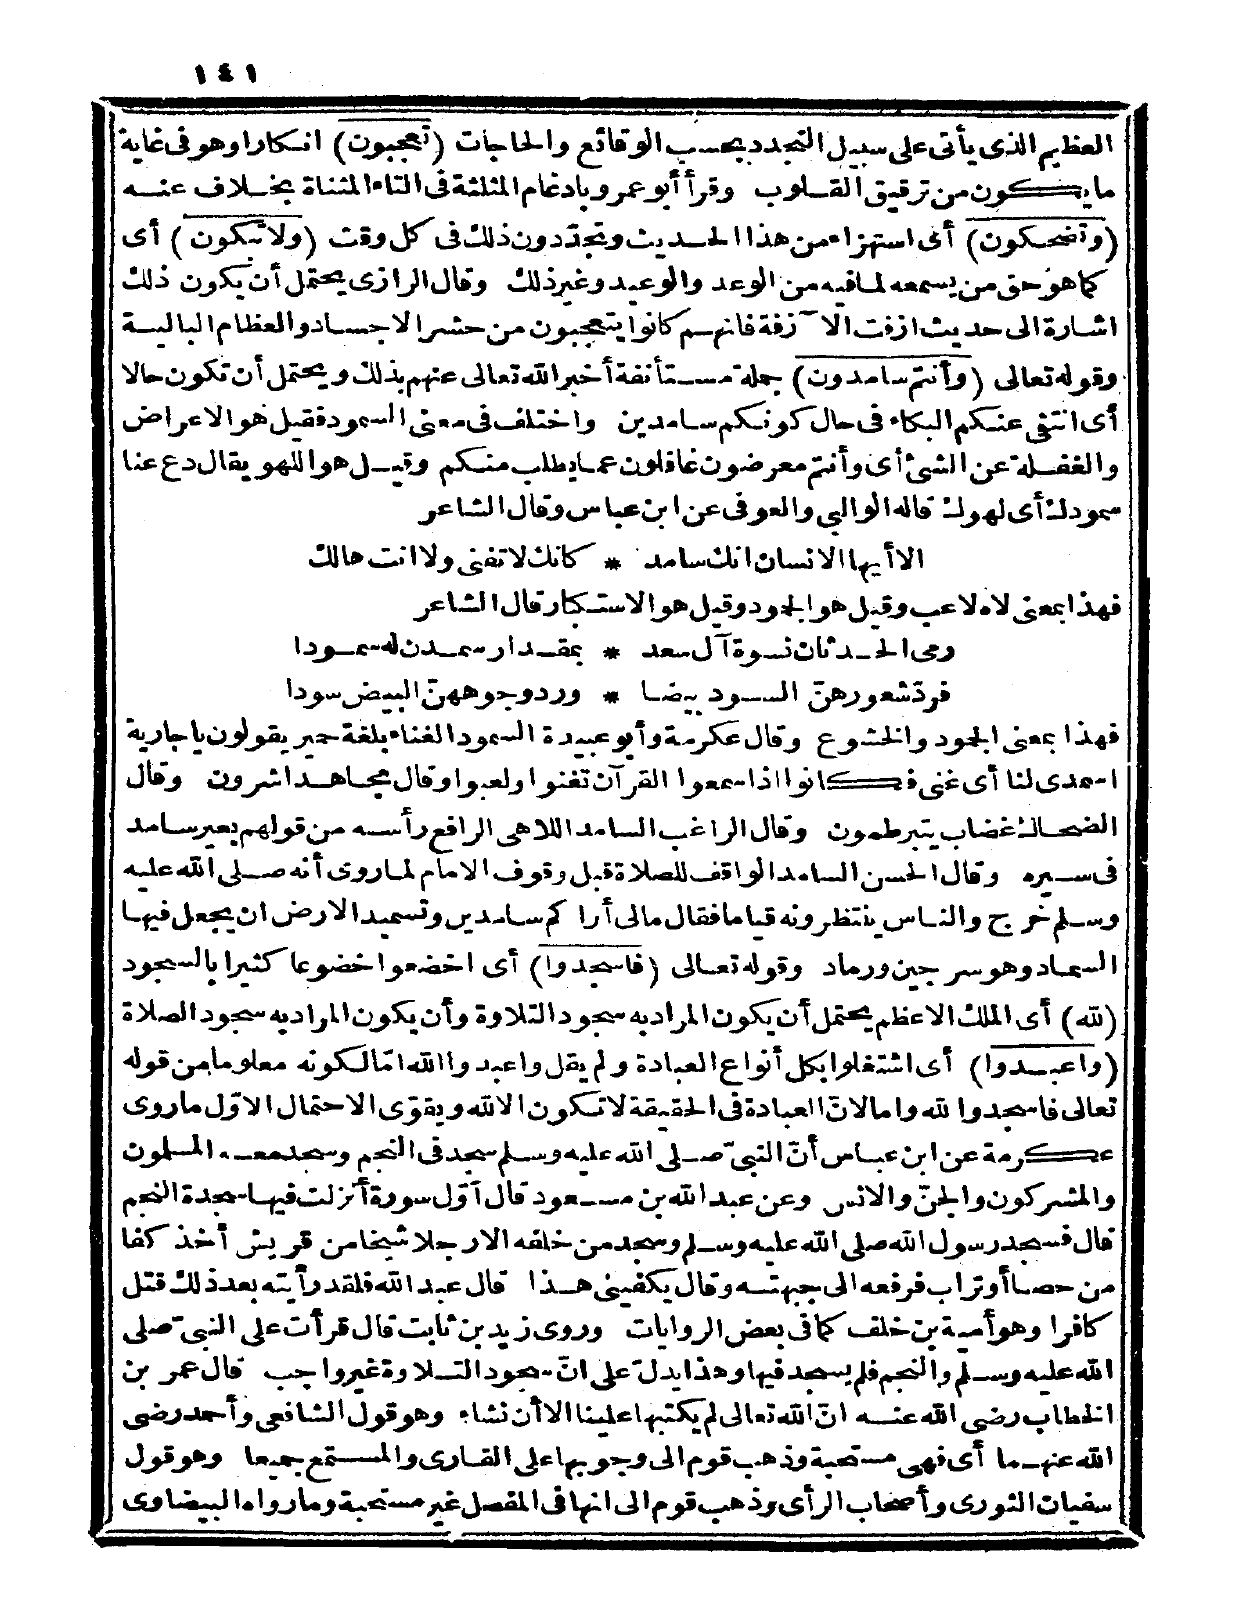 ١٤١
العظيم الذى يأتى على سبيل التجدد بحسب الوقائع والحاجات (تعجبون) انكارا وهو فى غاية
ما يكون من ترقيق القلوب وقرأ أبو عمرو بادغام المثلثة فى التاء المثناة بخلاف عنه
(وتضحكون) أى استهزاء من هذا الحديث وتجدّدون ذلك فى كل وقت (ولا تبكون) أى
كما هو حق من يسمعه لما فيه من الوعد والوعيد وغير ذلك وقال الرازى يحتمل أن يكون ذلك
اشارة الى حديث ازفت الآزفة فانهم كانوا يتعجبون من حشر الاجساد والعظام البالية
وقوله تعالى (وأنتم سامدون) جملة مستأنفة أخبر الله تعالى عنهم بذلك ويحتمل أن تكون حالا
أى انتفى عنكم البكاء فى حال كونكم سامدين واختلف فى معنى السمود فقيل هو الاعراض
والغفلة عن الشئ أى وأنتم معرضون غافلون عما يطلب منكم وقيل هو اللهو يقال دع عنا
سمودك أى لهوك قاله الوالبي والعوفى عن ابن عباس وقال الشاعر
الا أيها الانسان انك سامد * كانك لا تفنى ولا انت هالك
فهذا بمعنى لاه لاعب وقيل هو الجمود وقيل هو الاستكبار قال الشاعر
رمى الحدثان نسوة آل سعد * بمقدار سمدن له سمودا
فردّ شعورهنّ السود بيضا * ورد وجوههنّ البيض سودا
فهذا بمعنى الجمود والخشوع وقال عكرمة وأبو عبيدة السمود الغناء بلغة حمير يقولون يا جارية
اسمدى لنا أى غنى فكانوا اذا سمعوا القرآن تغنوا ولعبوا وقال مجاهد اشرون وقال
الضحاك غضاب يتبرطمون وقال الراغب السامد اللاهى الرافع رأسه من قولهم بعير سامد
فى سيره وقال الحسن السامد الواقف للصلاة قبل وقوف الامام لما روى أنه صلى الله عليه
وسلم خرج والناس ينتظرونه قياما فقال مالى أراكم سامدين وتسميد الارض ان يجعل فيها
السماد وهو سرجين ورماد وقوله تعالى (فاسجدوا) أى اخضعوا خضوعا كثيرا بالسجود
(لله) أى الملك الاعظم يحتمل أن يكون المراد به سجود التلاوة وأن يكون المراد به سجود الصلاة
(واعبدوا) أى اشتغلوا بكل أنواع العبادة ولم يقل واعبدوا الله امّا لكونه معلوما من قوله
تعالى فاسجدوا لله واما لانّ العبادة فى الحقيقة لا تكون الا لله ويقوّى الاحتمال الاوّل ما روى
عكرمة عن ابن عباس أنّ النبىّ صلى الله عليه وسلم سجد فى النجم وسجد معه المسلمون
والمشركون والجنّ والانس وعن عبد الله بن مسعود قال أوّل سورة أنزلت فيها سجدة النجم
قال فسجد رسول الله صلى الله عليه وسلم وسجد من خلفه الا رجلا شيخا من قريش أخذ كفا
من حصا أو تراب فرفعه الى جبهته وقال يكفينى هذا قال عبد الله فلقد رأيته بعد ذلك قتل
كافرا وهو أمية بن خلف كما فى بعض الروايات وروى زيد بن ثابت قال قرأت على النبىّ صلى
الله عليه وسلم والنجم فلم يسجد فيها وهذا يدلّ على انّ سجود التلاوة غير واجب قال عمر بن
الخطاب رضى الله عنه انّ الله تعالى لم يكتبها علينا الا أن نشاء وهو قول الشافعى وأحمد رضى
الله عنهما أى فهى مستحبة وذهب قوم الى وجوبها على القارى والمستمع جميعا وهو قول
سفيان الثورى وأصحاب الرأى وذهب قوم الى انها فى المفصل غير مستحبة وما رواه البيضاوى